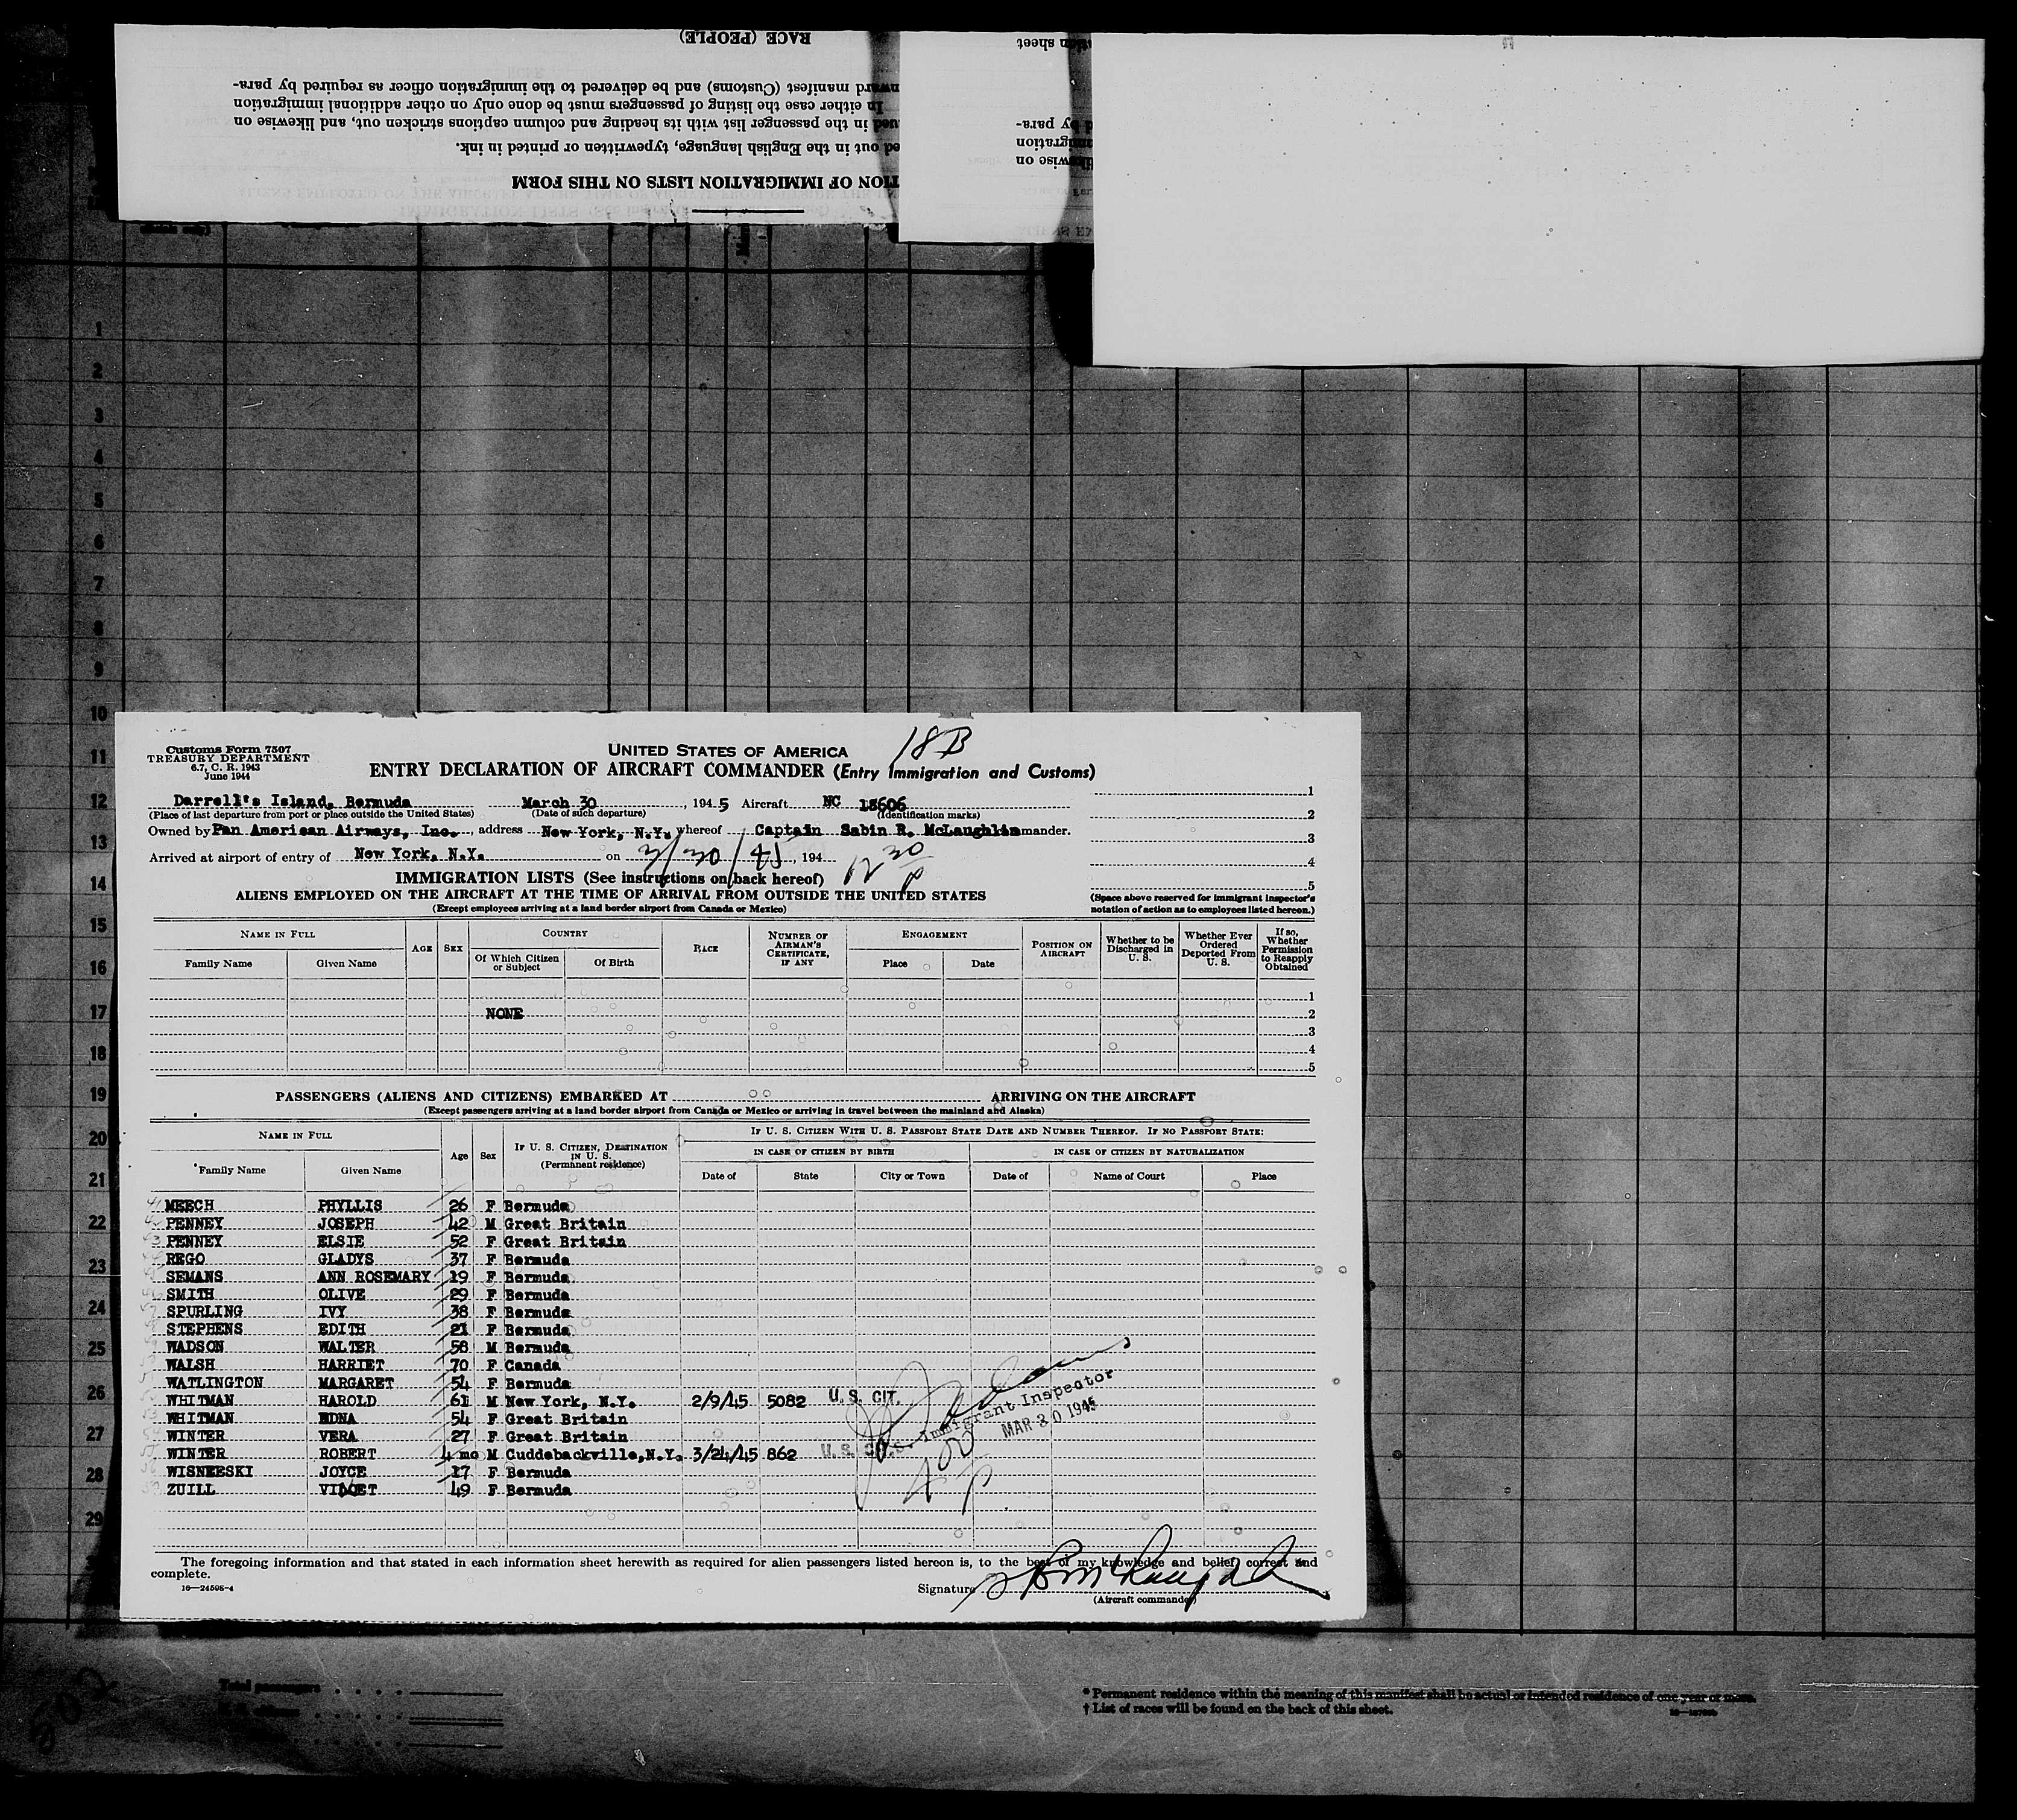 RACE (PEOPLE)
ward manifest (Customs) and be delivered to the immigration officer as required by para-
In either case the listing of passengers must be done only on other additional immigration
ued in the passenger list with its heading and column captions stricken out, and likewise on
ed out in the English language, typewritten or printed in ink.
TION OF IMMIGRATION LISTS ON THIS FORM
sheet
by para-
migration
likewise on
1
2
3
4
5
6
7
8
9
10
11
12
13
14
15
16
17
18
19
20
21
22
23
24
25
26
27
28
29
Customs Form 7507
TREASURY DEPARTMENT
6.7, C. R. 1943
June 1944
UNITED STATES OF AMERICA
18B
ENTRY DECLARATION OF AIRCRAFT COMMANDER (Entry Immigration and Customs)
Darrell's Island, Bermuda March 30, 1945 Aircraft NC 18606
(Place of last departure from port or place outside the United States) (Date of such departure) (Identification marks)
Owned by Pan American Airways, Inc., address New York, N.Y. whereof Captain Sabin R. McLaughlin mander.
Arrived at airport of entry of New York, N.Y. on 3/30/45, 194 12 30 P
1
2
3
4
5
IMMIGRATION LISTS (See instructions on back hereof)
ALIENS EMPLOYED ON THE AIRCRAFT AT THE TIME OF ARRIVAL FROM OUTSIDE THE UNITED STATES
(Except employees arriving at a land border airport from Canada or Mexico)
(Space above reserved for immigrant inspector's
notation of action as to employees listed hereon.)
NAME IN FULL AGE SEX COUNTRY RACE NUMBER OF AIRMAN'S CERTIFICATE, IF ANY ENGAGEMENT POSITION ON AIRCRAFT Whether to be Discharged in U. S. Whether Ever Ordered Deported From U. S. If so, Whether Permission to Reapply Obtained
Family Name Given Name Of Which Citizen or Subject Of Birth Place Date
1
NONE 2
3
4
5
PASSENGERS (ALIENS AND CITIZENS) EMBARKED AT ARRIVING ON THE AIRCRAFT
(Except passengers arriving at a land border airport from Canada or Mexico or arriving in travel between the mainland and Alaska)
NAME IN FULL Age Sex IF U. S. CITIZEN, DESTINATION IN U. S. (Permanent residence) IF U. S. CITIZEN WITH U. S. PASSPORT STATE DATE AND NUMBER THEREOF. IF NO PASSPORT STATE:
IN CASE OF CITIZEN BY BIRTH IN CASE OF CITIZEN BY NATURALIZATION
Family Name Given Name Date of State City or Town Date of Name of Court Place
MEECH PHYLLIS 26 F Bermuda
PENNEY JOSEPH 42 M Great Britain
PENNEY ELSIE 52 F Great Britain
REGO GLADYS 37 F Bermuda
SEMANS ANN ROSEMARY 19 F Bermuda
SMITH OLIVE 29 F Bermuda
SPURLING IVY 38 F Bermuda
STEPHENS EDITH 21 F Bermuda
WADSON WALTER 58 M Bermuda
WALSH HARRIET 70 F Canada
WATLINGTON MARGARET 54 F Bermuda
WHITMAN HAROLD 61 M New York, N.Y. 2/9/45 5082 U. S. CIT.
WHITMAN EDNA 54 F Great Britain
WINTER VERA 27 F Great Britain
WINTER ROBERT 4 mo M Cuddebackville, N.Y. 3/24/45 862 U. S. CIT.
WISNEESKI JOYCE 17 F Bermuda
ZUILL 49 F Bermuda
Immigrant Inspector
MAR 30 1945
The foregoing information and that stated in each information sheet herewith as required for alien passengers listed hereon is, to the best of my knowledge and belief, correct and
complete.
16—24598-4
Signature
(Aircraft commander)
502
Total passengers
* Permanent residence within the meaning of this manifest shall be actual or intended residence of one year or more.
† List of races will be found on the back of this sheet.